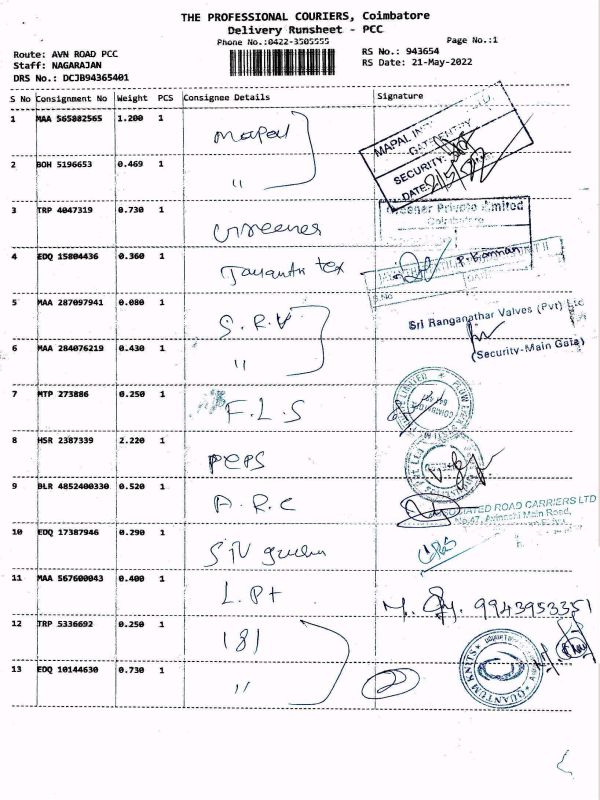 THE PROFESSIONAL COURIERS, Coimbatore
Delivery Runsheet - PCC
Phone No.:0422-3505555
Page No.:1
Route: AVN ROAD PCC
Staff: NAGARAJAN
DRS No.: DCJB94365401
RS No.: 943654
RS Date: 21-May-2022
S No Consignment No Weight PCS Consignee Details Signature
1 MAA 565802565 1.200 1 Mapal
2 BOH 5196653 0.469 1 "
MAPAL
GATE ENTRY
SECURITY:
DATE:
3 TRP 4047319 0.730 1
Private Limited
Coimbatore
4 EDQ 15804436 0.360 1 Jayanth tex
5 MAA 287097941 0.080 1 S.R.V
Sri Ranganathar Valves (Pvt) Ltd
6 MAA 284076219 0.430 1 "
(Security-Main Gate)
7 MTP 273886 0.250 1 F.L.S
8 HSR 2387339 2.220 1 PePS
9 BLR 4852400330 0.520 1 A.R.C
ROAD CARRIERS LTD
No.47, Avinashi Main Road,
10 EDQ 17387946 0.290 1
11 MAA 567600043 0.400 1 L.Pt
9943953351
12 TRP 5336692 0.250 1 181
13 EDQ 10144630 0.730 1 " 2
QUANTUM KNITS